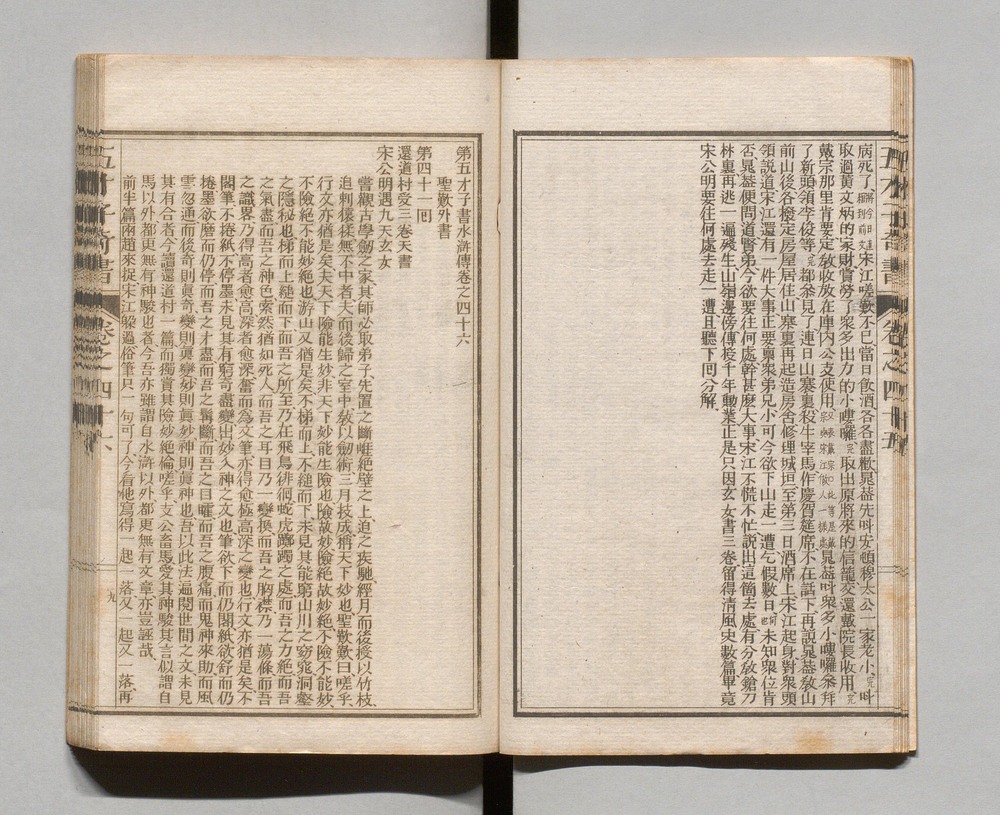 病死了宋江嗟歎不已當日飲酒各各盡歡晁葢先呌安頓穆太公一家老小完呌
取過黃文炳的家財賞勞了衆多出力的小嘍囉完取出原將來的信籠交還戴院長收用完
戴宗那里肯要定敎收放在庫内公支使用晁葢呌衆多小嘍囉叅拜
了新頭領李俊等完都叅見了連日山寨裏殺牛宰馬作慶賀筵席不在話下再說晁葢敎山
前山後各撥定房屋居住山寨裏再起造房舍修理城垣至第三日酒席上宋江起身對衆頭
領說道宋江還有一件大事正要禀衆弟兄小可今欲下山走一遭乞假數日未知衆位肯
否晁葢便問道賢弟今欲要往何處幹甚麽大事宋江不慌不忙說出這箇去處有分敎鎗刀
林裏再逃一遍殘生山嶺邊傍傳授千年勳業正是只因玄女書三卷留得清風史數篇畢竟
宋公明要往何處去走一遭且聽下回分解
第五才子書水滸傳卷之四十六
聖歎外書
第四十一囘
還道村受三卷天書
宋公明遇九天玄女
嘗觀古學劒之家其師必取弟子先置之斷崖絶壁之上迫之疾馳經月而後授以竹枝
追刺猿猱無不中者夫而後歸之室中敎以劒術三月技成稱天下妙也聖歎歎曰嗟乎
行文亦猶是矣夫天下險能生妙非天下妙能生險也險故妙險絶故妙絶不險不能妙
不險絶不能妙絶也游山又猶是矣不梯而上不縋而下未見其能窮山川之窈窕洞壑
之隱秘也梯而上縋而下而吾之所至乃在飛鳥徘徊蛇虎躑躅之處而吾之力絶而吾
之氣盡而吾之神色索然猶如死人而吾之耳目乃一變換而吾之胸襟乃一蕩滌而吾
之識畧乃得高者愈高深者愈深奮而爲文筆亦得愈極高深之變也行文亦猶是矣不
閣筆不捲紙不停墨未見其有窮奇盡變出妙入神之文也筆欲下而仍閣紙欲舒而仍
捲墨欲磨而仍停而吾之才盡而吾之髯斷而吾之目矐而吾之腹痛而鬼神來助而風
雲忽通而後奇則眞奇變則眞變妙則眞妙神則眞神也吾以此法遍閱世間之文未見
其有合者今讀還道村一篇而獨賞其險妙絶倫嗟乎支公畜馬愛其神駿其言似謂自
馬以外都更無有神駿也者今吾亦雖謂自水滸以外都更無有文章亦豈誣哉
前半篇兩趙來捉宋江躱過俗筆只一句可了今看他寫得一起一落又一起又一落再
卷之四十六
九